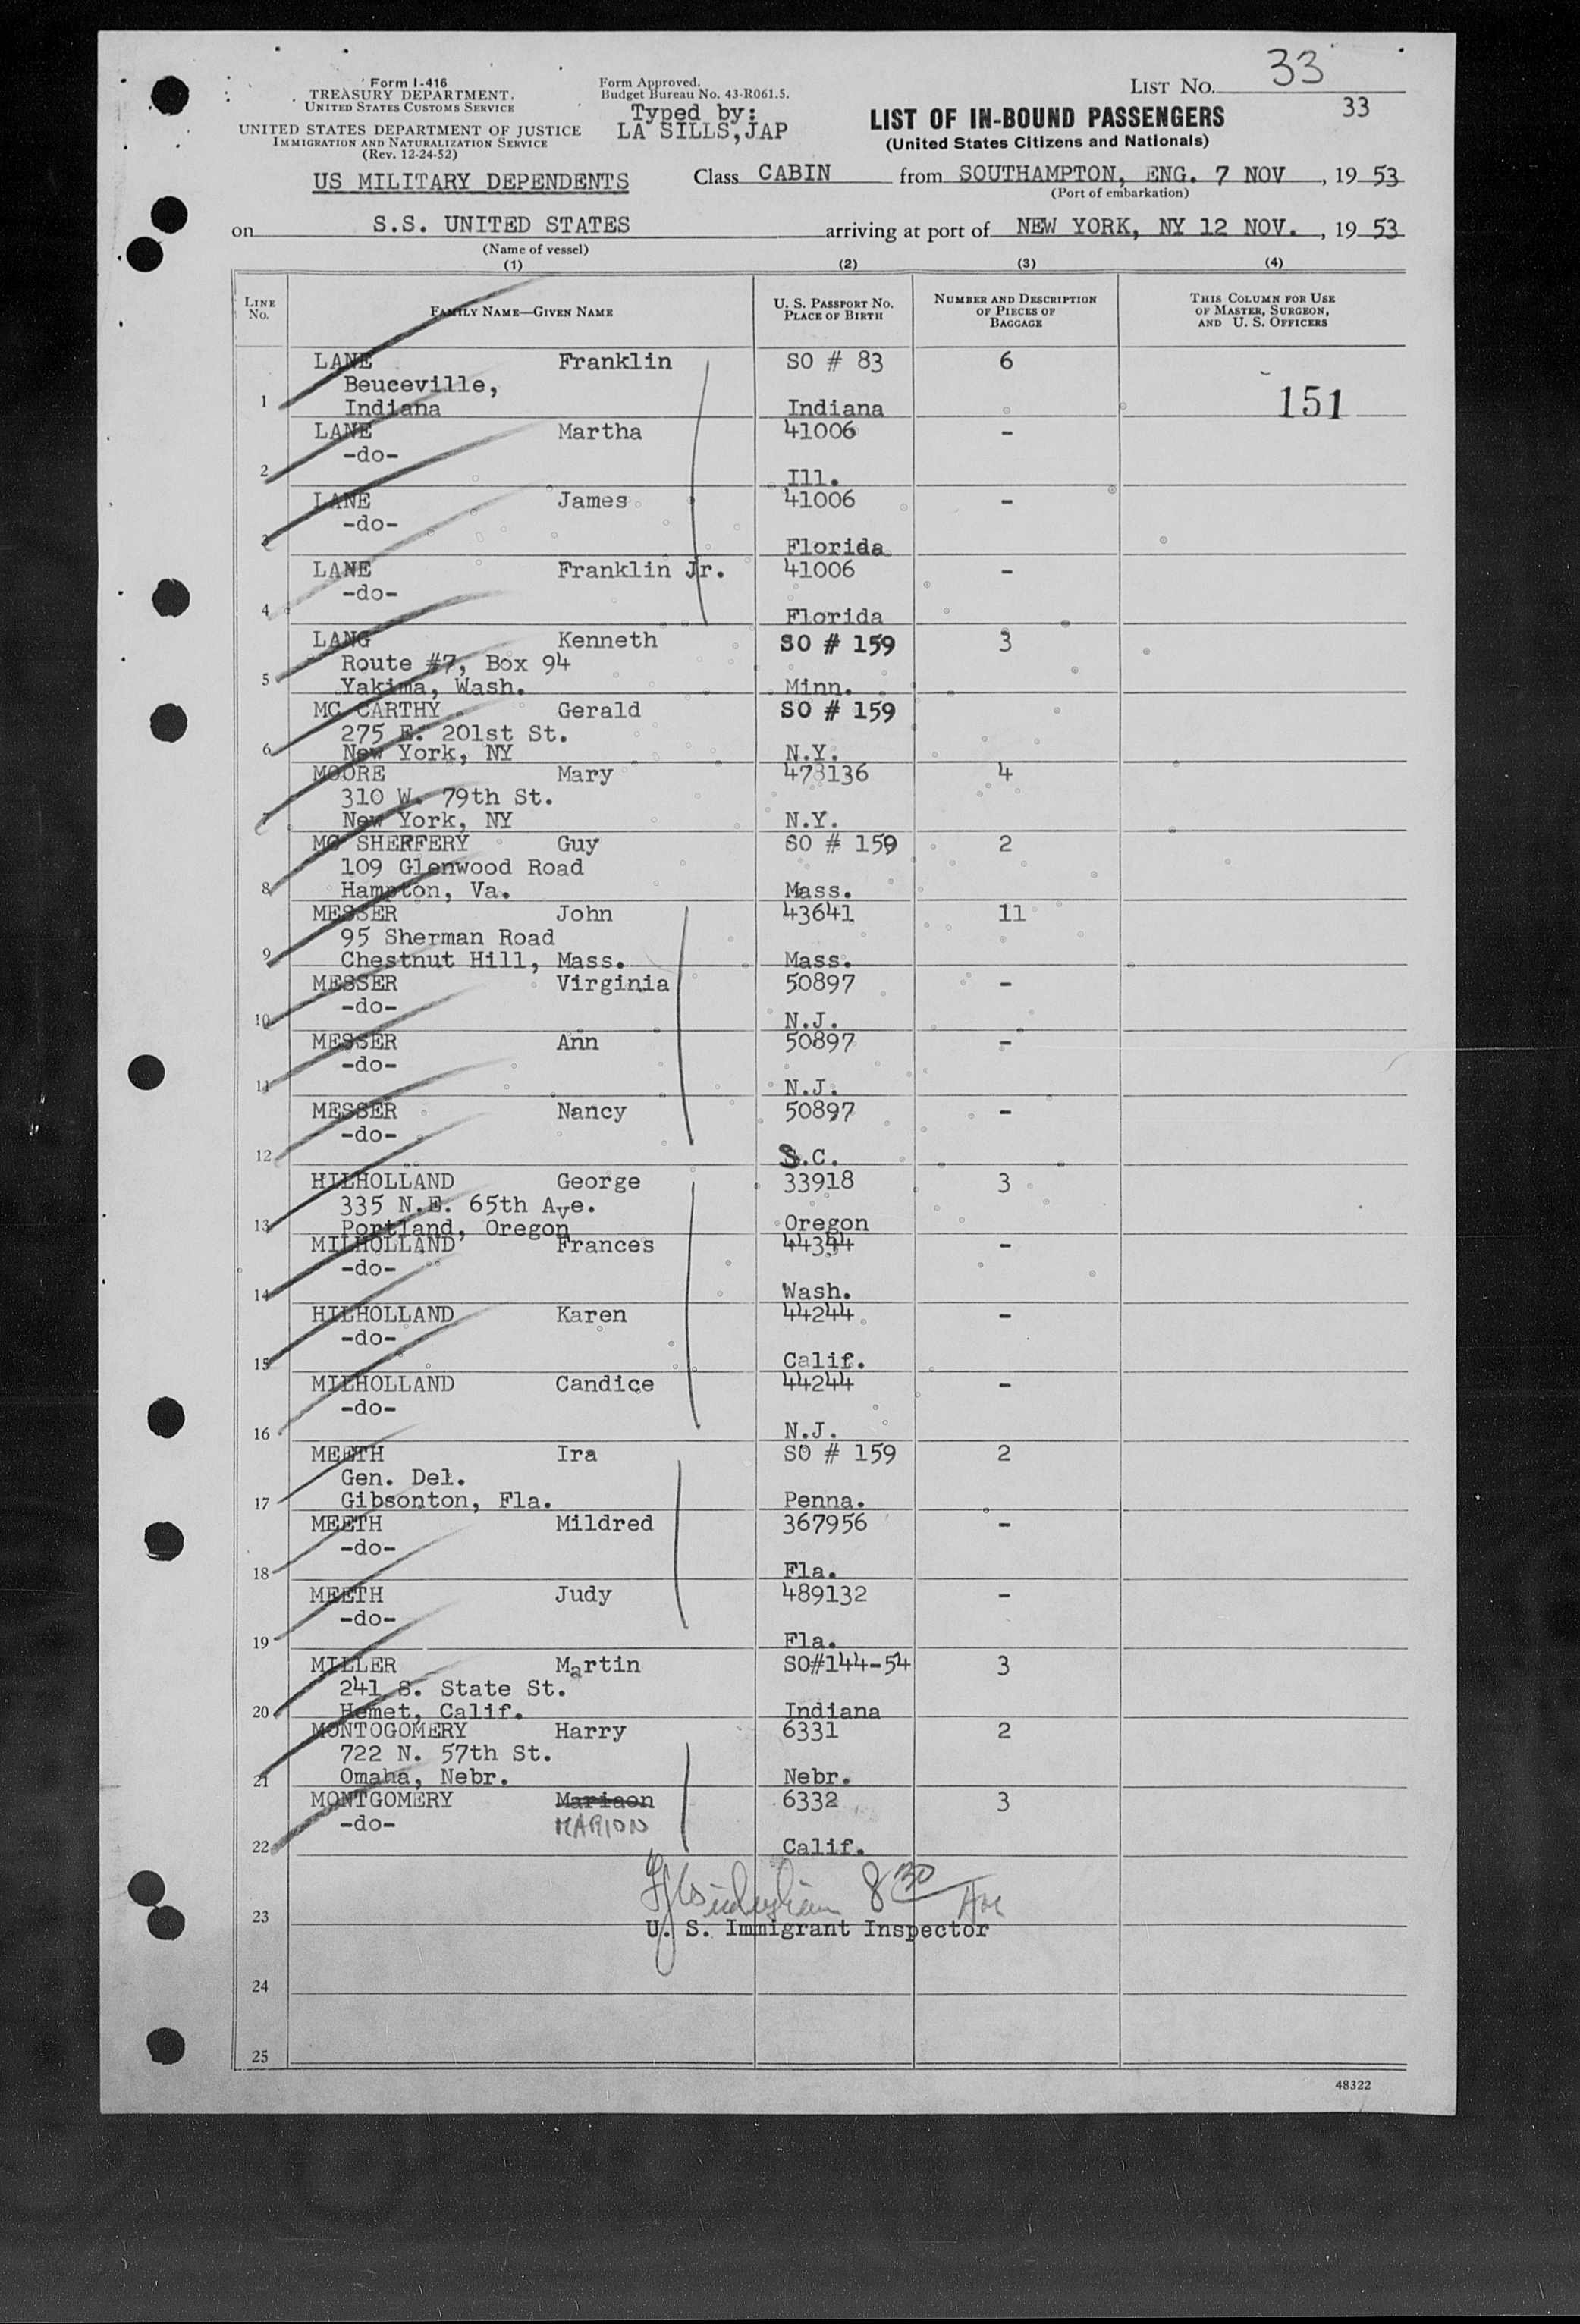 Form I-416
TREASURY DEPARTMENT.
UNITED STATES CUSTOMS SERVICE
UNITED STATES DEPARTMENT OF JUSTICE
IMMIGRATION AND NATURALIZATION SERVICE
(Rev. 12-24-52)
Form Approved.
Budget Bureau No. 43-R061.5.
Typed by:
LA SILLS, JAP
LIST NO. 33
33
LIST OF IN-BOUND PASSENGERS
(United States Citizens and Nationals)
US MILITARY DEPENDENTS
Class CABIN from SOUTHAMPTON, ENG. 7 NOV, 19 53
(Port of embarkation)
on S.S. UNITED STATES arriving at port of NEW YORK, NY 12 NOV., 19 53
(Name of vessel)
(1) (2) (3) (4)
LINE NO. FAMILY NAME—GIVEN NAME U. S. PASSPORT NO. PLACE OF BIRTH NUMBER AND DESCRIPTION OF PIECES OF BAGGAGE THIS COLUMN FOR USE OF MASTER, SURGEON, AND U. S. OFFICERS
LANE Franklin SO # 83 6
Beuceville,
1 Indiana Indiana 151
LANE Martha 41006 -
-do-
2 Ill.
LANE James 41006 -
-do-
3 Florida
LANE Franklin Jr. 41006 -
-do-
4 Florida
LANG Kenneth SO # 159 3
Route #7, Box 94
5 Yakima, Wash. Minn.
MC CARTHY Gerald SO # 159
275 E. 201st St.
6 New York, NY N.Y.
MOORE Mary 473136 4
310 W. 79th St.
7 New York, NY N.Y.
MC SHEFFERY Guy SO # 159 2
109 Glenwood Road
8 Hampton, Va. Mass.
MESSER John 43641 11
95 Sherman Road
9 Chestnut Hill, Mass. Mass.
MESSER Virginia 50897 -
-do-
10 N.J.
MESSER Ann 50897 -
-do-
11 N.J.
MESSER Nancy 50897 -
-do-
12 S.C.
HILHOLLAND George 33918 3
335 N.E. 65th Ave.
13 Portland, Oregon Oregon
MILHOLLAND Frances 44344 -
-do-
14 Wash.
HILHOLLAND Karen 44244 -
-do-
15 Calif.
MILHOLLAND Candice 44244 -
-do-
16 N.J.
MEETH Ira SO # 159 2
Gen. Del.
17 Gibsonton, Fla. Penna.
MEETH Mildred 367956 -
-do-
18 Fla.
MEETH Judy 489132 -
-do-
19 Fla.
MILLER Martin SO#144-54 3
241 S. State St.
20 Hemet, Calif. Indiana
MONTOGOMERY Harry 6331 2
722 N. 57th St.
21 Omaha, Nebr. Nebr.
MONTGOMERY Mariaon 6332 3
-do- MARION
22 Calif.
8 30
23
U. S. Immigrant Inspector
24
25
48322